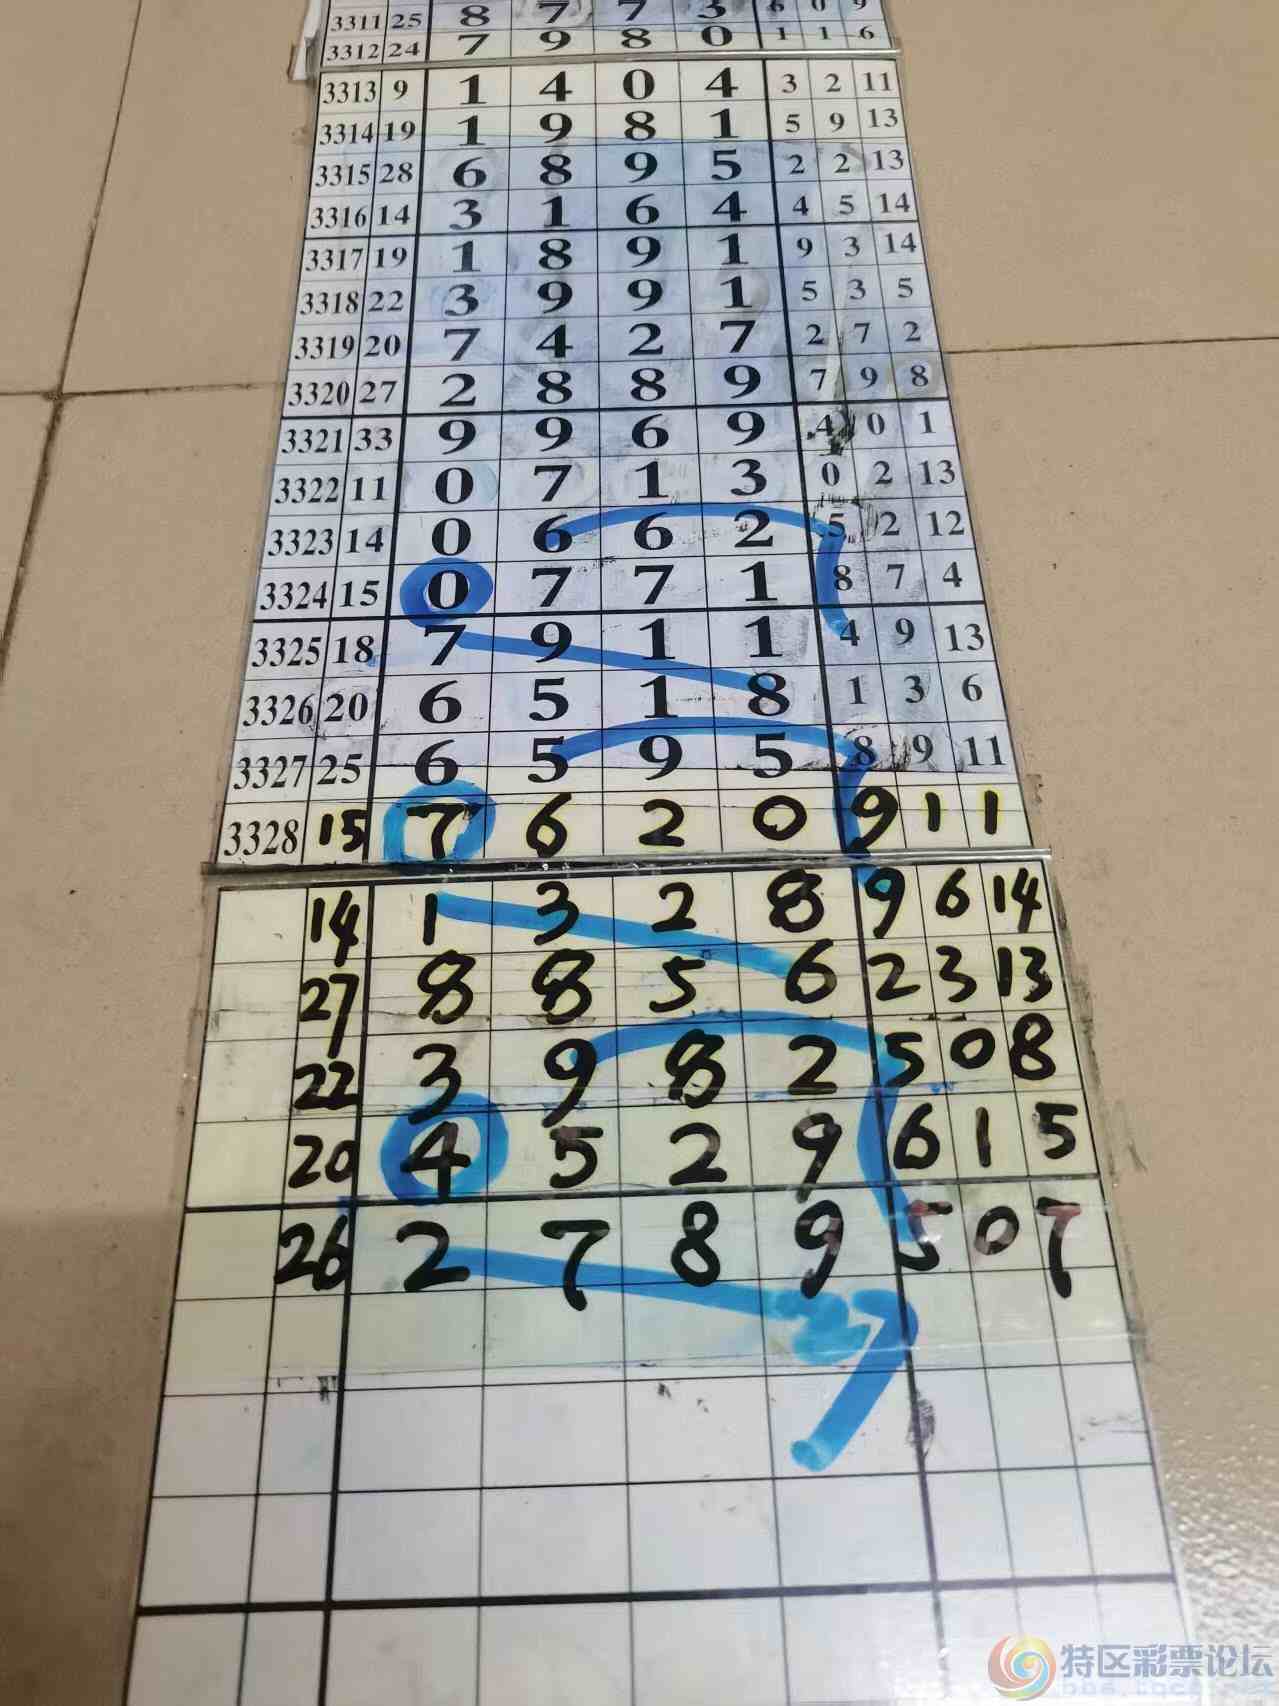 3311 25 8 7 7 3 6 0 9
3312 24 7 9 8 0 1 1 6
3313 9 1 4 0 4 3 2 11
3314 19 1 9 8 1 5 9 13
3315 28 6 8 9 5 2 2 13
3316 14 3 1 6 4 4 5 14
3317 19 1 8 9 1 9 3 14
3318 22 3 9 9 1 5 3 5
3319 20 7 4 2 7 2 7 2
3320 27 2 8 8 9 7 9 8
3321 33 9 9 6 9 4 0 1
3322 11 0 7 1 3 0 2 13
3323 14 0 6 6 2 5 2 12
3324 15 0 7 7 1 8 7 4
3325 18 7 9 1 1 4 9 13
3326 20 6 5 1 8 1 3 6
3327 25 6 5 9 5 8 9 11
3328 15 7 6 2 0 9 1 1
14 1 3 2 8 9 6 14
27 8 8 5 6 2 3 13
22 3 9 8 2 5 0 8
20 4 5 2 9 6 1 5
26 2 7 8 9 5 0 7
特区彩票论坛